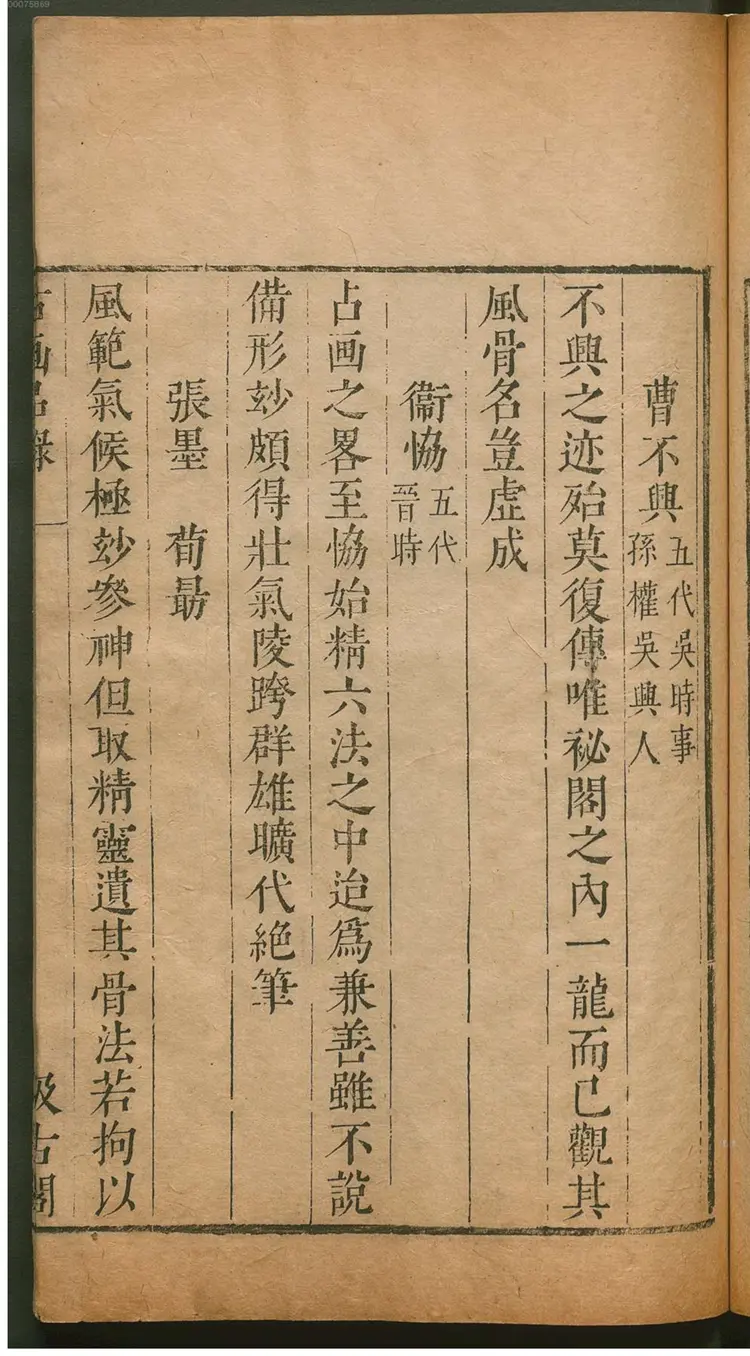 曹不興五代吳時事孫權吳興人
不興之迹殆莫復傳唯祕閣之內一龍而已觀其
風骨名豈虛成
衞恊五代晉時
占画之畧至恊始精六法之中迨爲兼善雖不說
備形玅頗得壯氣陵跨群雄曠代絶筆
張墨 荀勗
風範氣候極玅參神但取精靈遺其骨法若拘以
古画品錄 一 汲古閣
00075889